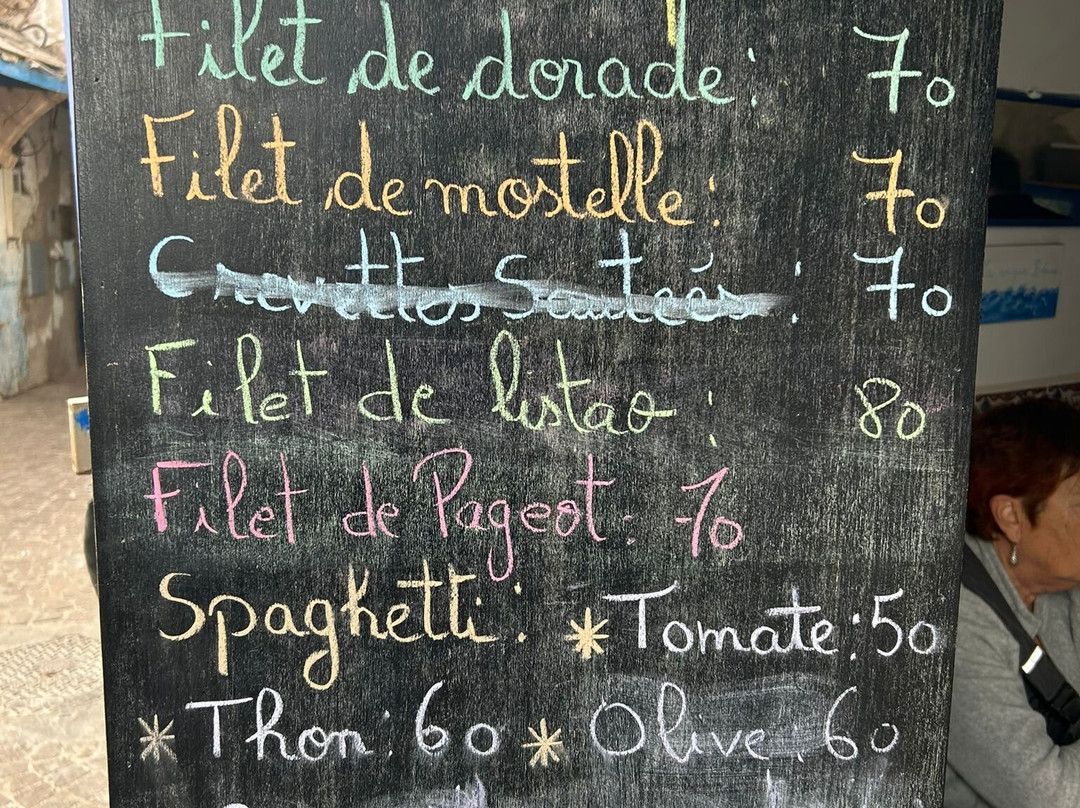 Filet de dorade: 70
Filet de mostelle: 70
Crevettes Sautées: 70
Filet de listao: 80
Filet de Pageot: 70
Spaghetti: * Tomate: 50
* Thon: 60 * Olive: 60